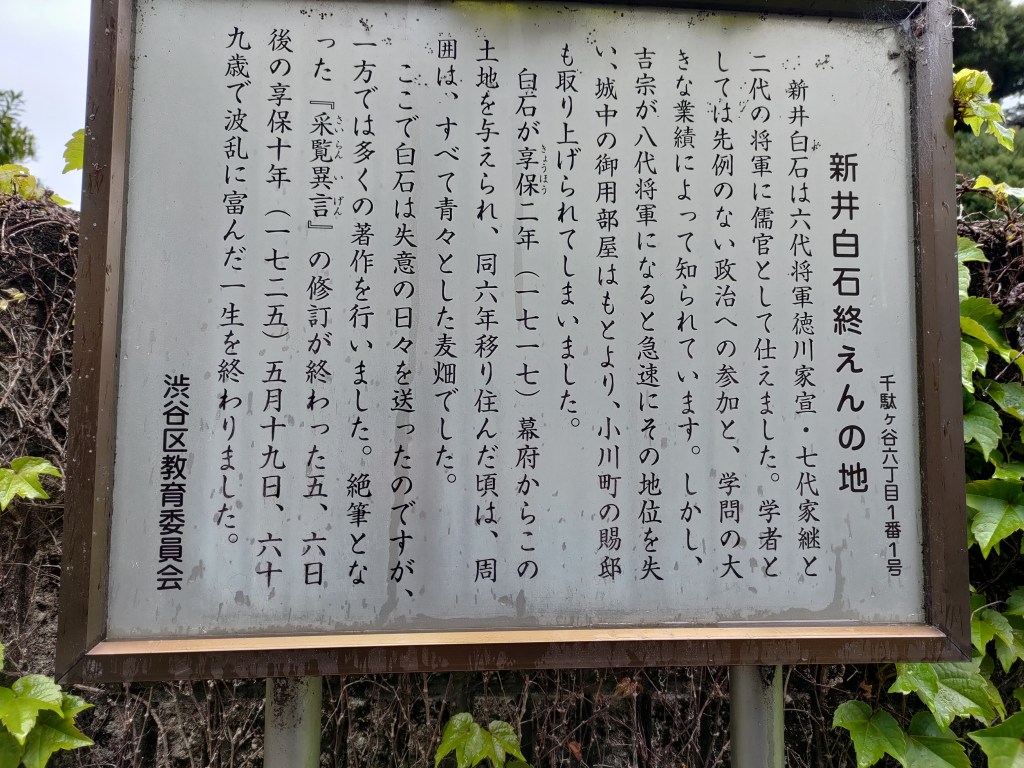 千駄ヶ谷六丁目1番1号
新井白石終えんの地
新井白石は六代将軍徳川家宣・七代家継と
二代の将軍に儒官として仕えました。学者と
しては先例のない政治への参加と、学問の大
きな業績によって知られています。しかし、
吉宗が八代将軍になると急速にその地位を失
い、城中の御用部屋はもとより、小川町の賜邸
も取り上げられてしまいました。
白石が享保二年（一七一七）幕府からこの
土地を与えられ、同六年移り住んだ頃は、周
囲は、すべて青々とした麦畑でした。
ここで白石は失意の日々を送ったのですが、
一方では多くの著作を行いました。絶筆とな
った『采覧異言』の修訂が終わった五、六日
後の享保十年（一七二五）五月十九日、六十
九歳で波乱に富んだ一生を終わりました。
渋谷区教育委員会